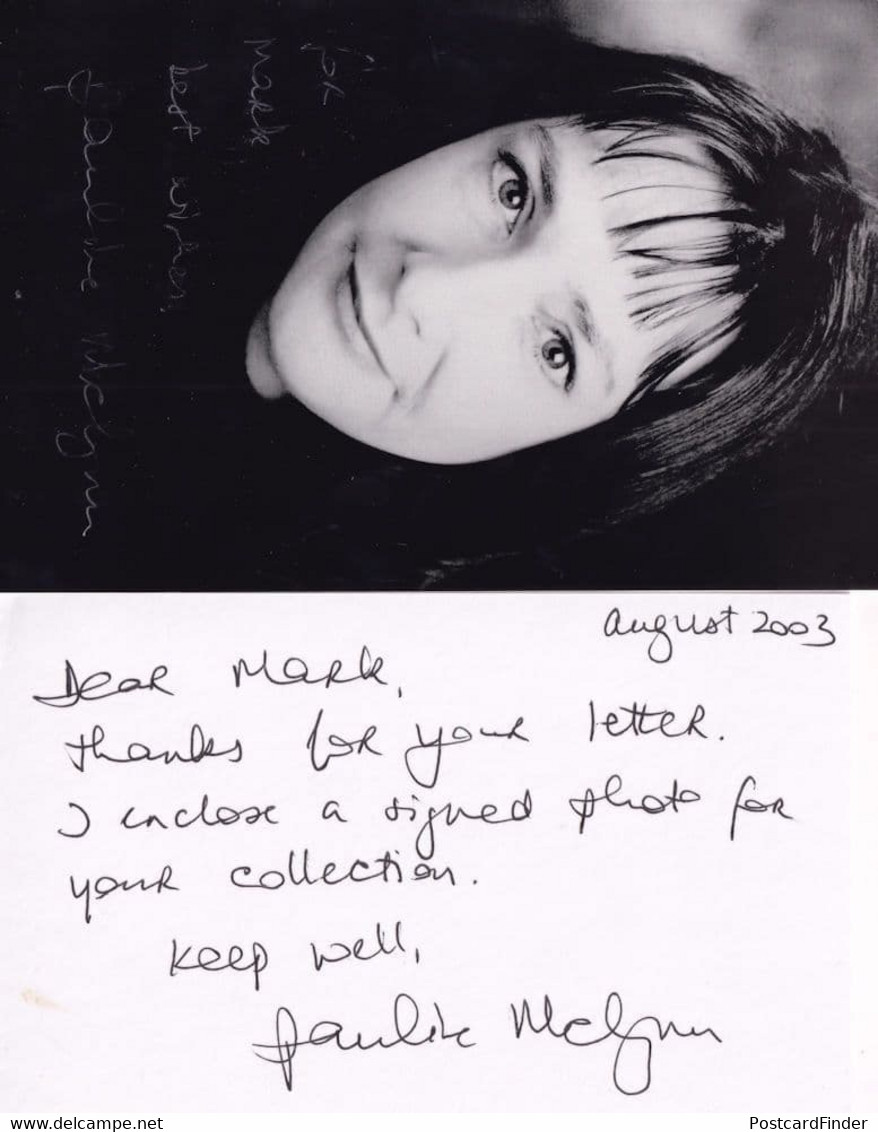 for
Mark,
best wishes,
Pauline McLynn
August 2003
Dear Mark,
Thanks for your letter.
I enclose a signed photo for
your collection.
Keep well,
Pauline McLynn
www.delcampe.net
PostcardFinder